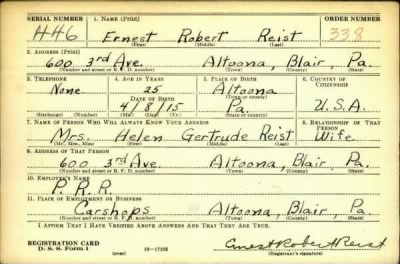 SERIAL NUMBER 1. NAME (Print) ORDER NUMBER
446 Ernest Robert Reist 338
(First) (Middle) (Last)
2. ADDRESS (Print)
600 3rd Ave. Altoona, Blair, Pa.
(Number and street or R. F. D. number) (Town) (County) (State)
3. TELEPHONE 4. AGE IN YEARS 5. PLACE OF BIRTH 6. COUNTRY OF CITIZENSHIP
None 25 Altoona
DATE OF BIRTH (Town or county)
4/8/15 Pa. U.S.A.
(Exchange) (Number) (Mo.) (Day) (Yr.) (State or country)
7. NAME OF PERSON WHO WILL ALWAYS KNOW YOUR ADDRESS 8. RELATIONSHIP OF THAT PERSON
Mrs. Helen Gertrude Reist Wife
(Mr., Mrs., Miss) (First) (Middle) (Last)
9. ADDRESS OF THAT PERSON
600 3rd Ave. Altoona, Blair, Pa.
(Number and street or R. F. D. number) (Town) (County) (State)
10. EMPLOYER'S NAME
P. R. R.
11. PLACE OF EMPLOYMENT OR BUSINESS
Carshops Altoona, Blair, Pa.
(Number and street or R. F. D. number) (Town) (County) (State)
I AFFIRM THAT I HAVE VERIFIED ABOVE ANSWERS AND THAT THEY ARE TRUE.
REGISTRATION CARD
D. S. S. Form 1 (over) 16—17105 Ernest Robert Reist
(Registrant's signature)